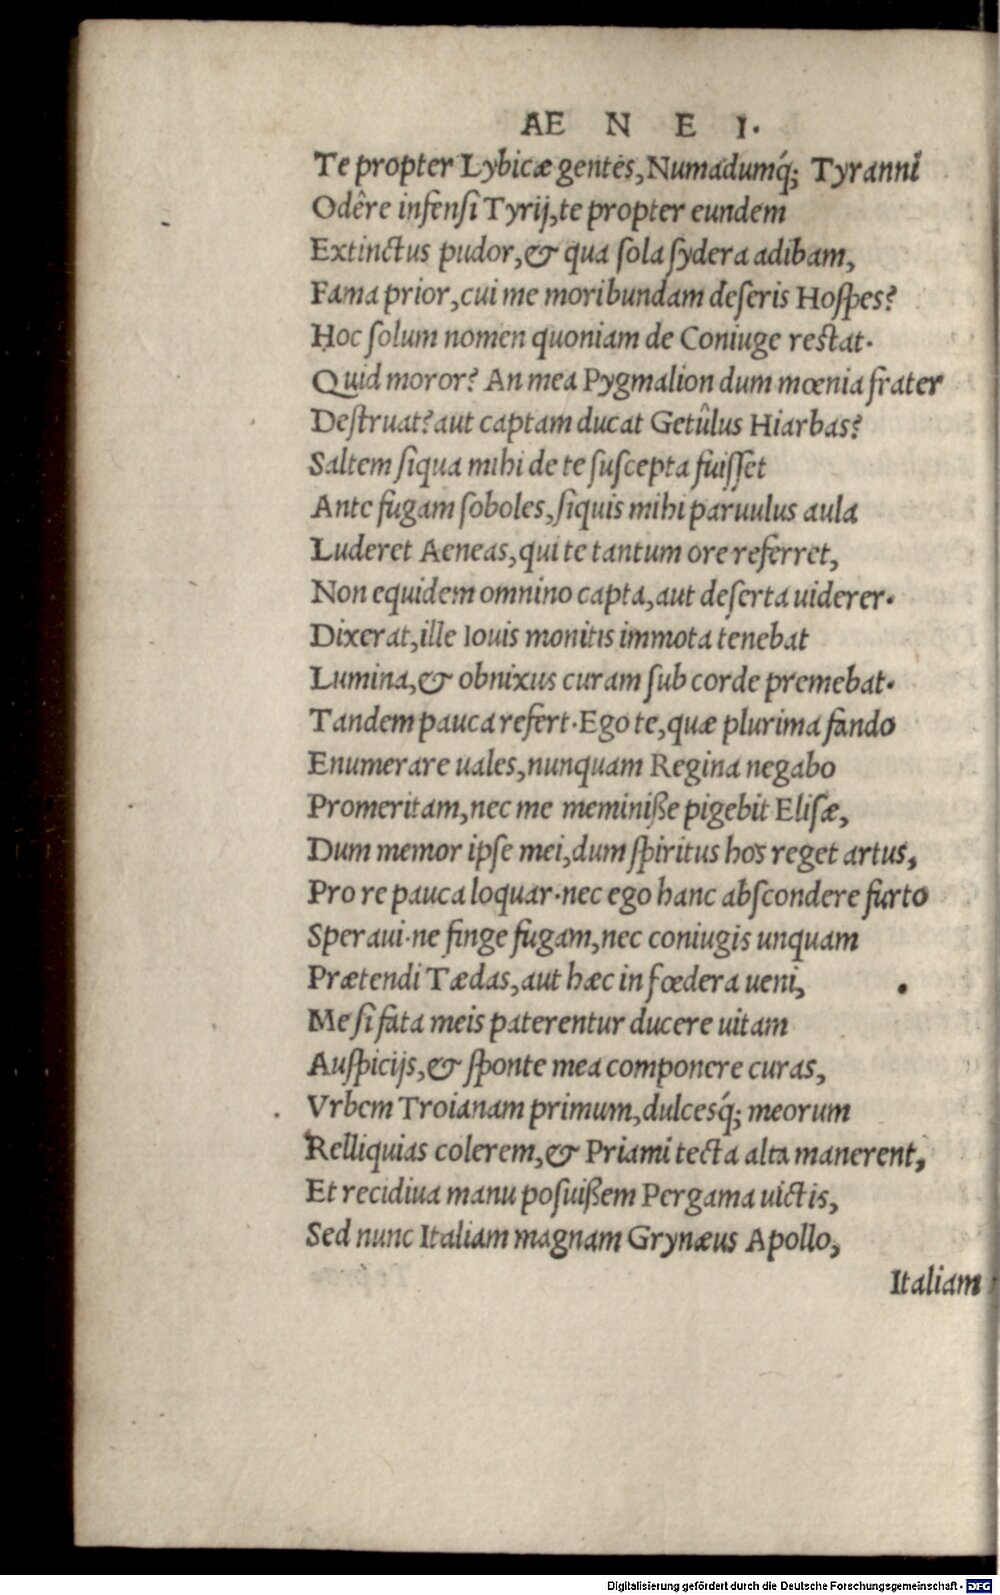 AE N E I.
Te propter Lybicæ gentes, Numadumq́; Tyranni
Odêre infensi Tyrij, te propter eundem
Extinctus pudor, & qua sola sydera adibam,
Fama prior, cui me moribundam deseris Hospes?
Hoc solum nomen quoniam de Coniuge restat.
Quid moror? An mea Pygmalion dum mœnia frater
Destruat? aut captam ducat Getûlus Hiarbas?
Saltem siqua mihi de te suscepta fuisset
Ante fugam soboles, siquis mihi paruulus aula
Luderet Aeneas, qui te tantum ore referret,
Non equidem omnino capta, aut deserta uiderer.
Dixerat, ille Iouis monitis immota tenebat
Lumina, & obnixus curam sub corde premebat.
Tandem pauca refert. Ego te, quæ plurima fando
Enumerare uales, nunquam Regina negabo
Promeritam, nec me meminiße pigebit Elisæ,
Dum memor ipse mei, dum spiritus hos reget artus,
Pro re pauca loquar. nec ego hanc abscondere furto
Speraui. ne finge fugam, nec coniugis unquam
Prætendi Tædas, aut hæc in fœdera ueni,
Me si fata meis paterentur ducere uitam
Auspicijs, & sponte mea componere curas,
Vrbem Troianam primum, dulcesq́; meorum
Relliquias colerem, & Priami tecta alta manerent,
Et recidiua manu posuißem Pergama uictis,
Sed nunc Italiam magnam Grynæus Apollo,
Italiam
Digitalisierung gefördert durch die Deutsche Forschungsgemeinschaft - DFG